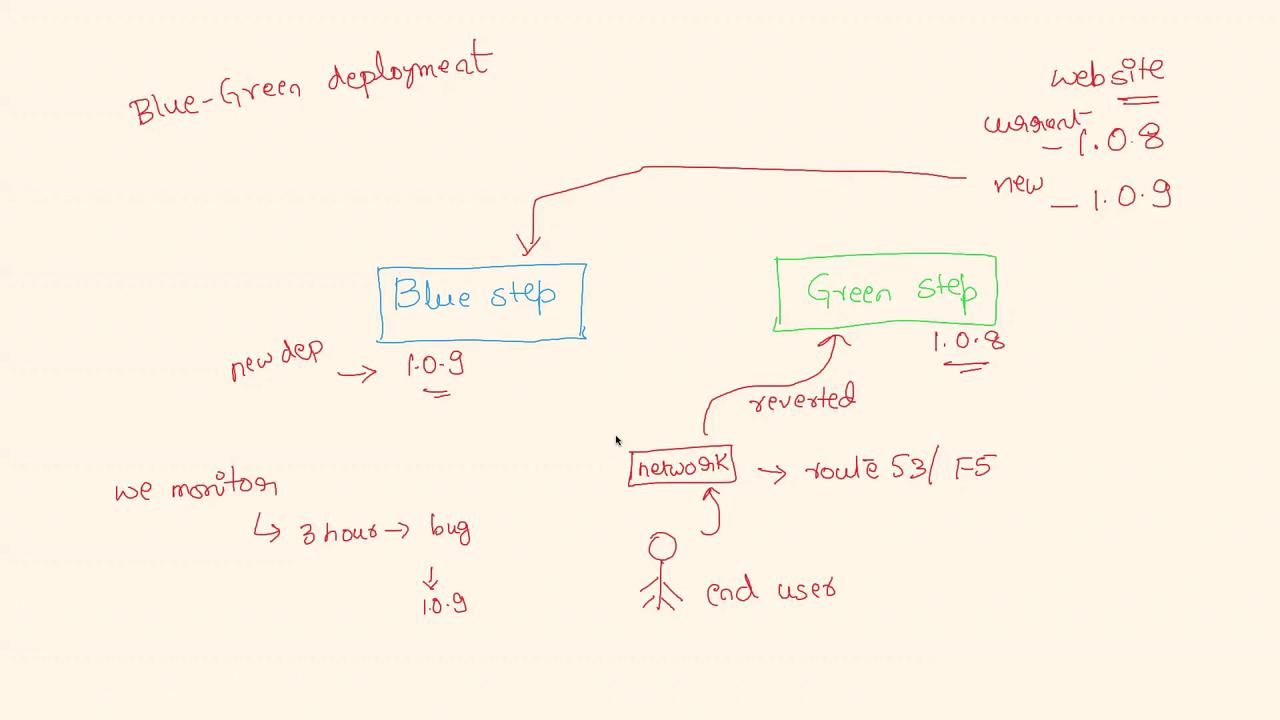 Blue-Green deployment
website
current - 1.0.8
new - 1.0.9
Blue step
Green step
new dep → 1.0.9
1.0.8
reverted
network → route 53/ F5
we monitor
↳ 3 hour → bug
↓
1.0.9
end user